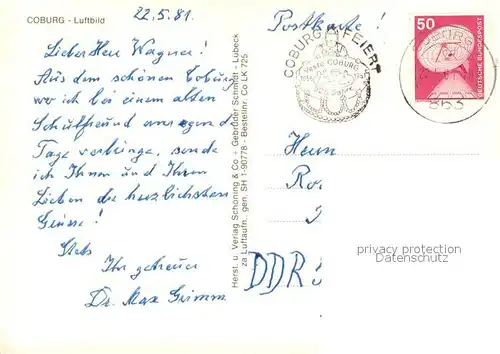 COBURG - Luftbild
22.5.81.
Postkarte!
Lieber Herr Wagner!
Aus dem schönen Coburg
wo ich bei einem alten
Schulfreund
Tage verbringe, sende
ich Ihnen und Ihren
Lieben die herzlichsten
Grüsse!
Stets
Ihr getreuer
Dr. Max Grimm
Herst. u. Verlag Schöning & Co - Gebrüder Schmidt - Lübeck
za Luftaufn. gen. SH 1-90778 - Bestellnr. Co LK 725
COBURG FEIERT
50
DEUTSCHE BUNDESPOST
863
Herrn
DDR
privacy protection
Datenschutz